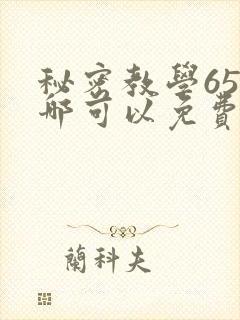 秘密教學65
哪可以免費
蘭科夫